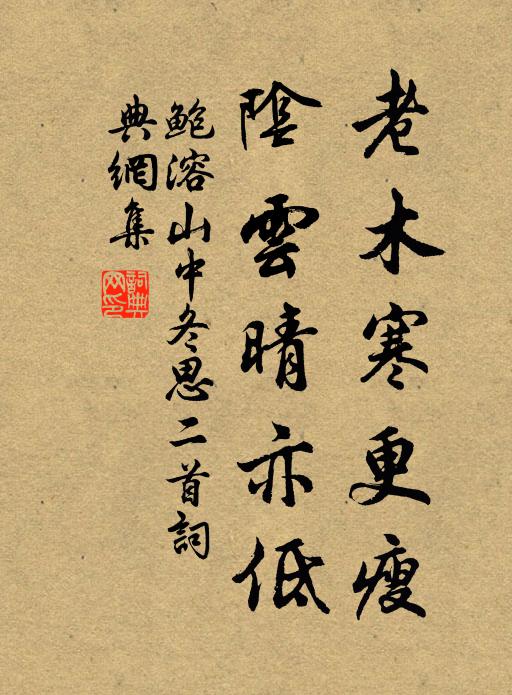 老木寒更瘦
陰雲晴亦低
鮑溶山中冬思二首詞
典網集
詞典
网印